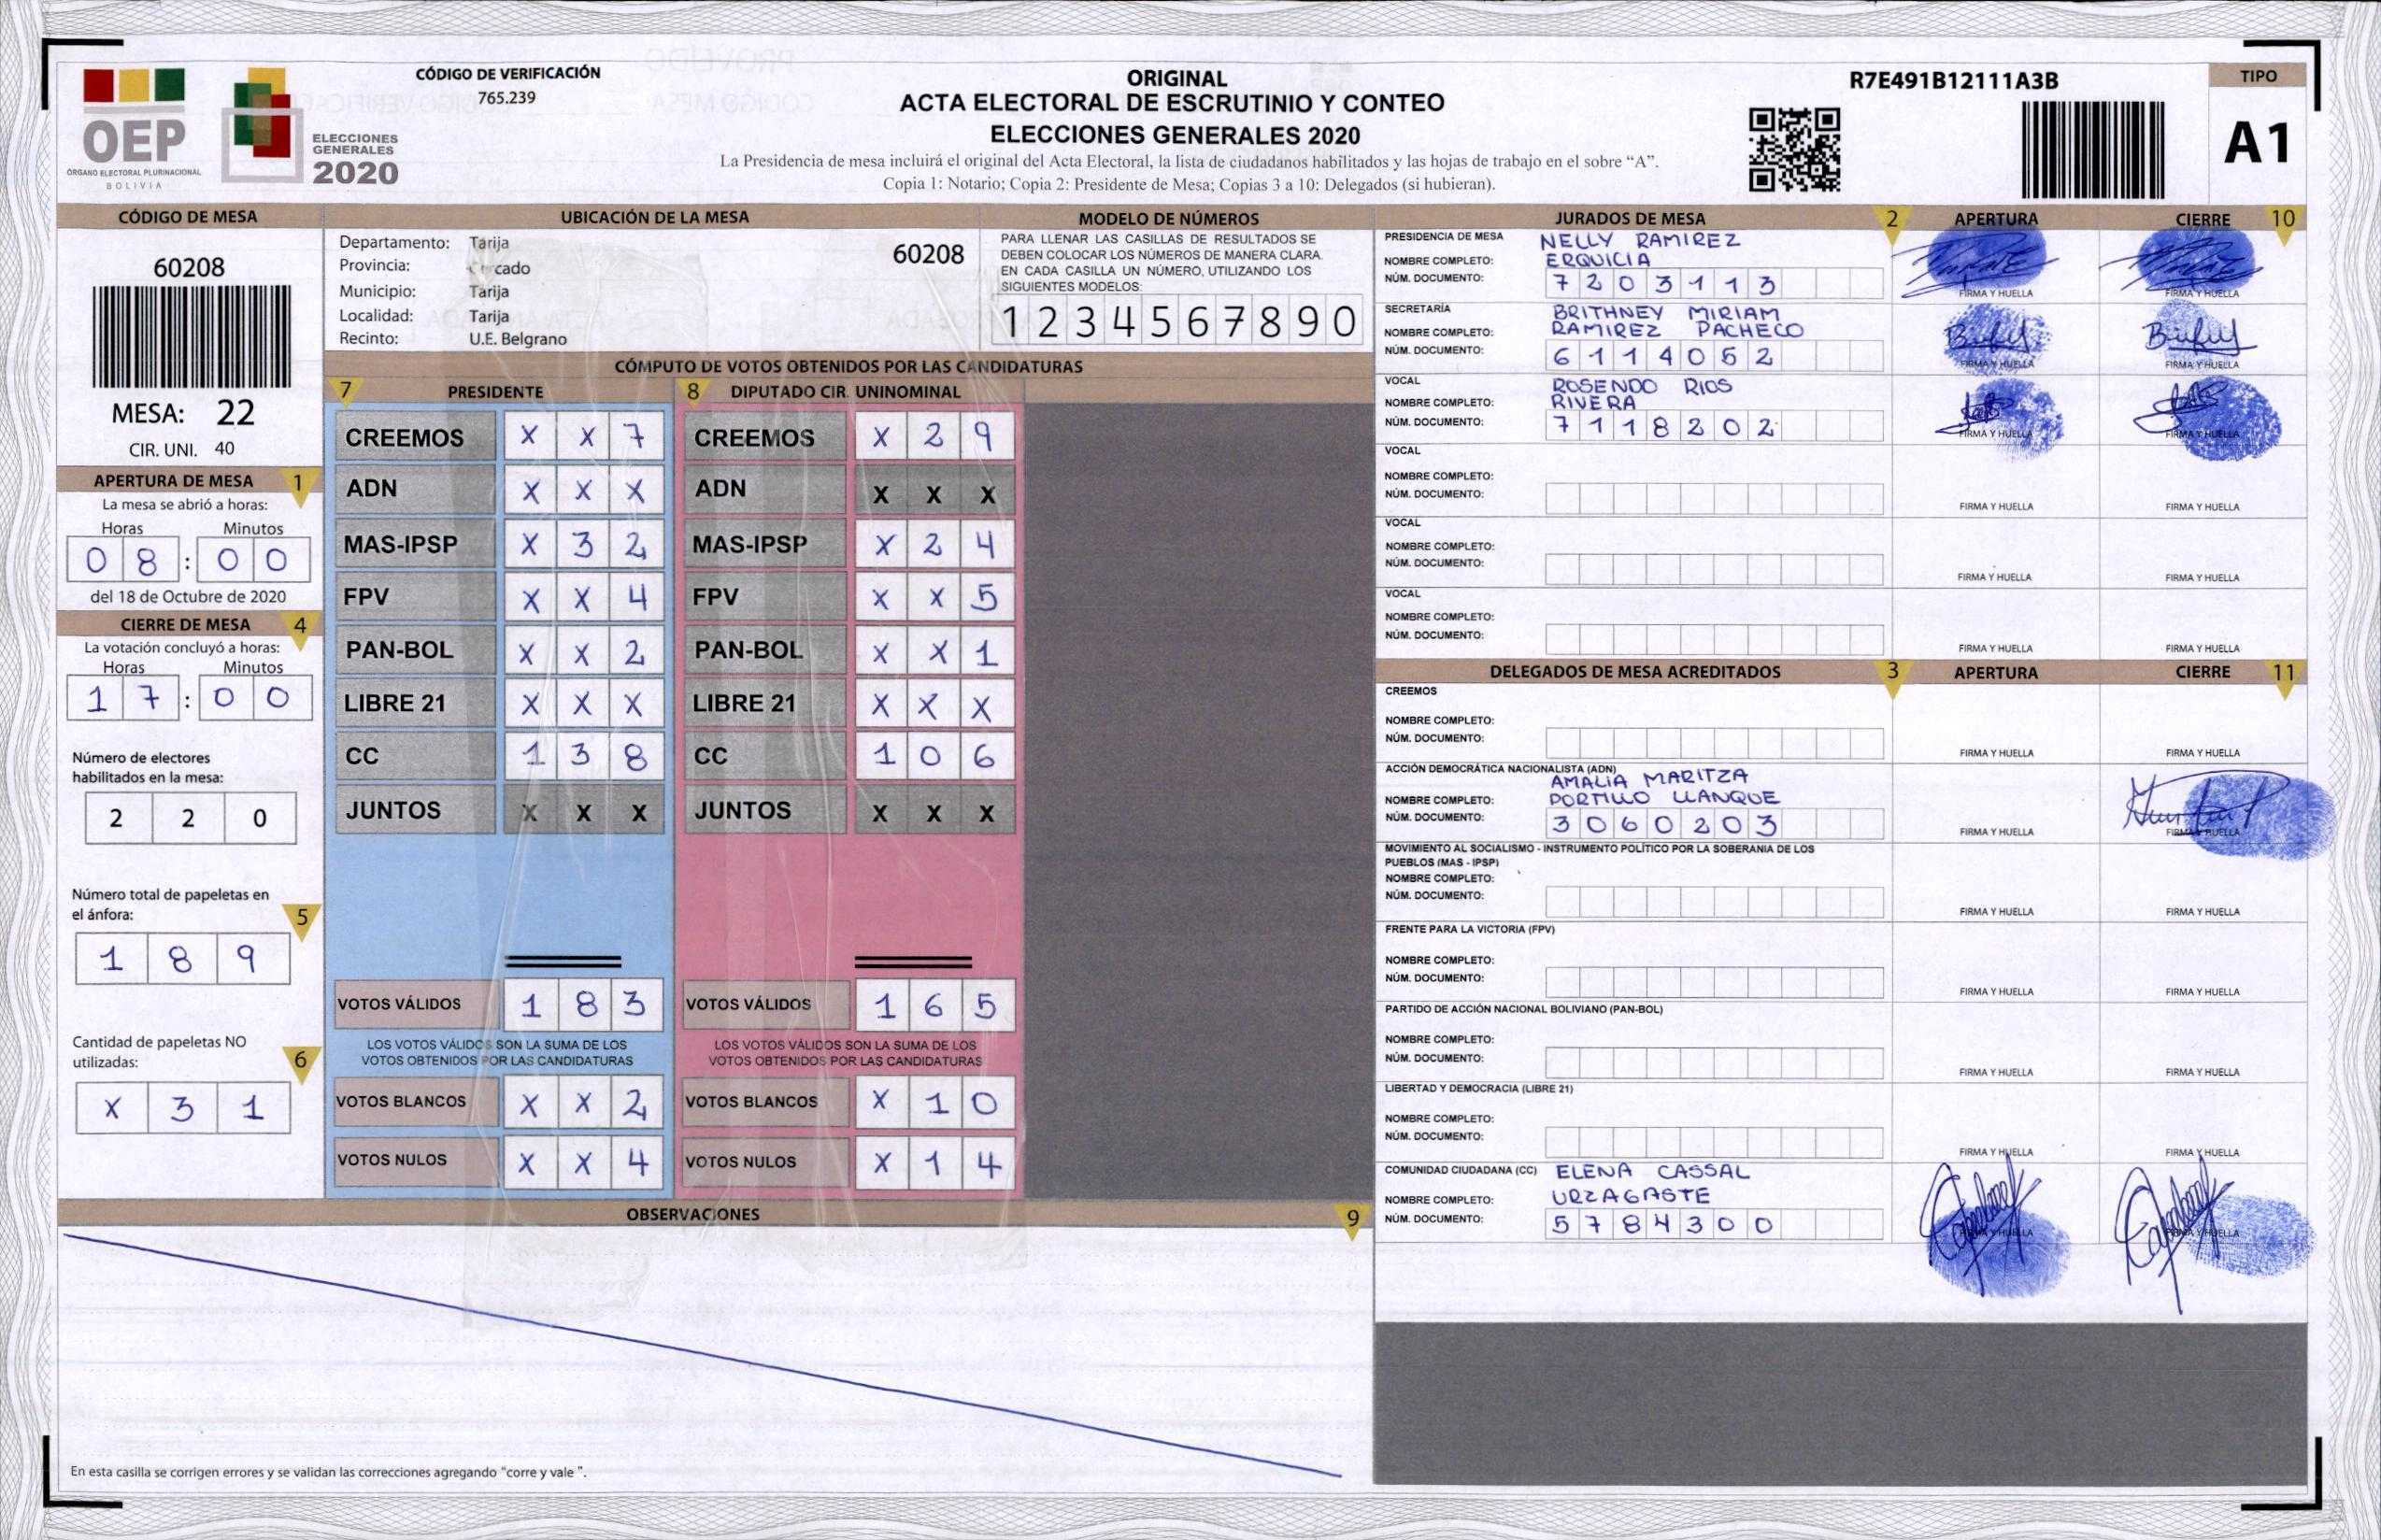 OEP
ÓRGANO ELECTORAL PLURINACIONAL
BOLIVIA
ELECCIONES
GENERALES
2020
CÓDIGO DE VERIFICACIÓN
765.239
ORIGINAL
ACTA ELECTORAL DE ESCRUTINIO Y CONTEO
ELECCIONES GENERALES 2020
La Presidencia de mesa incluirá el original del Acta Electoral, la lista de ciudadanos habilitados y las hojas de trabajo en el sobre “A”.
Copia 1: Notario; Copia 2: Presidente de Mesa; Copias 3 a 10: Delegados (si hubieran).
R7E491B12111A3B
TIPO
A1
CÓDIGO DE MESA
60208
MESA: 22
CIR. UNI. 40
APERTURA DE MESA 1
La mesa se abrió a horas:
Horas Minutos
0 8 : 0 0
del 18 de Octubre de 2020
CIERRE DE MESA 4
La votación concluyó a horas:
Horas Minutos
1 7 : 0 0
Número de electores
habilitados en la mesa:
2 2 0
Número total de papeletas en
el ánfora: 5
1 8 9
Cantidad de papeletas NO
utilizadas: 6
X 3 1
UBICACIÓN DE LA MESA
Departamento: Tarija 60208
Provincia: rcado
Municipio: Tarija
Localidad: Tarija
Recinto: U.E. Belgrano
MODELO DE NÚMEROS
PARA LLENAR LAS CASILLAS DE RESULTADOS SE
DEBEN COLOCAR LOS NÚMEROS DE MANERA CLARA.
EN CADA CASILLA UN NÚMERO, UTILIZANDO LOS
SIGUIENTES MODELOS:
1 2 3 4 5 6 7 8 9 0
CÓMPUTO DE VOTOS OBTENIDOS POR LAS CANDIDATURAS
7 PRESIDENTE 8 DIPUTADO CIR. UNINOMINAL
CREEMOS X X 7 CREEMOS X 2 9
ADN X X X ADN X X X
MAS-IPSP X 3 2 MAS-IPSP X 2 4
FPV X X 4 FPV X X 5
PAN-BOL X X 2 PAN-BOL X X 1
LIBRE 21 X X X LIBRE 21 X X X
CC 1 3 8 CC 1 0 6
JUNTOS X X X JUNTOS X X X
VOTOS VÁLIDOS 1 8 3 VOTOS VÁLIDOS 1 6 5
LOS VOTOS VÁLIDOS SON LA SUMA DE LOS LOS VOTOS VÁLIDOS SON LA SUMA DE LOS
VOTOS OBTENIDOS POR LAS CANDIDATURAS VOTOS OBTENIDOS POR LAS CANDIDATURAS
VOTOS BLANCOS X X 2 VOTOS BLANCOS X 1 0
VOTOS NULOS X X 4 VOTOS NULOS X 1 4
OBSERVACIONES 9
En esta casilla se corrigen errores y se validan las correcciones agregando “corre y vale ”.
JURADOS DE MESA 2 APERTURA CIERRE 10
PRESIDENCIA DE MESA NELLY RAMIREZ
NOMBRE COMPLETO: ERQUICIA
NÚM. DOCUMENTO: 7 2 0 3 1 1 3
FIRMA Y HUELLA FIRMA Y HUELLA
SECRETARÍA BRITHNEY MIRIAM
NOMBRE COMPLETO: RAMIREZ PACHECO
NÚM. DOCUMENTO: 6 1 1 4 0 5 2
FIRMA Y HUELLA FIRMA Y HUELLA
VOCAL ROSENDO RIOS
NOMBRE COMPLETO: RIVERA
NÚM. DOCUMENTO: 7 1 1 8 2 0 2
FIRMA Y HUELLA FIRMA Y HUELLA
VOCAL
NOMBRE COMPLETO:
NÚM. DOCUMENTO:
FIRMA Y HUELLA FIRMA Y HUELLA
VOCAL
NOMBRE COMPLETO:
NÚM. DOCUMENTO:
FIRMA Y HUELLA FIRMA Y HUELLA
VOCAL
NOMBRE COMPLETO:
NÚM. DOCUMENTO:
FIRMA Y HUELLA FIRMA Y HUELLA
DELEGADOS DE MESA ACREDITADOS 3 APERTURA CIERRE 11
CREEMOS
NOMBRE COMPLETO:
NÚM. DOCUMENTO:
FIRMA Y HUELLA FIRMA Y HUELLA
ACCIÓN DEMOCRÁTICA NACIONALISTA (ADN)
AMALIA MARITZA
NOMBRE COMPLETO: PORTILLO LLANQUE
NÚM. DOCUMENTO: 3 0 6 0 2 0 3
FIRMA Y HUELLA FIRMA Y HUELLA
MOVIMIENTO AL SOCIALISMO - INSTRUMENTO POLÍTICO POR LA SOBERANIA DE LOS
PUEBLOS (MAS - IPSP)
NOMBRE COMPLETO:
NÚM. DOCUMENTO:
FIRMA Y HUELLA FIRMA Y HUELLA
FRENTE PARA LA VICTORIA (FPV)
NOMBRE COMPLETO:
NÚM. DOCUMENTO:
FIRMA Y HUELLA FIRMA Y HUELLA
PARTIDO DE ACCIÓN NACIONAL BOLIVIANO (PAN-BOL)
NOMBRE COMPLETO:
NÚM. DOCUMENTO:
FIRMA Y HUELLA FIRMA Y HUELLA
LIBERTAD Y DEMOCRACIA (LIBRE 21)
NOMBRE COMPLETO:
NÚM. DOCUMENTO:
FIRMA Y HUELLA FIRMA Y HUELLA
COMUNIDAD CIUDADANA (CC) ELENA CASSAL
NOMBRE COMPLETO: URZAGASTE
NÚM. DOCUMENTO: 5 7 8 4 3 0 0
FIRMA Y HUELLA FIRMA Y HUELLA